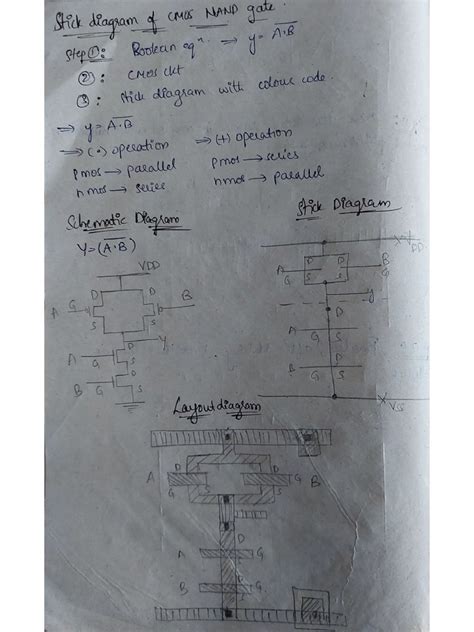 Stick diagram of CMOS NAND gate.
Step ①: Boolean eqⁿ. → y = \overline{A·B}
②: CMOS ckt
③: Stick diagram with colour code.
⇒ y = \overline{A·B}
⇒ (·) operation ⇒ (+) operation
pmos → parallel pmos → series
nmos → series nmos → parallel
Schematic Diagram Stick Diagram
Y = (\overline{A·B})
VDD
D D
A G B
S S
Y
A D
G S
D
B G S
VDD
D D
A B
G S S G
y
D
A
G S
D
B
G S
VSS
Layout diagram
D D
A B
G S S G
D
A G
D
B G
S